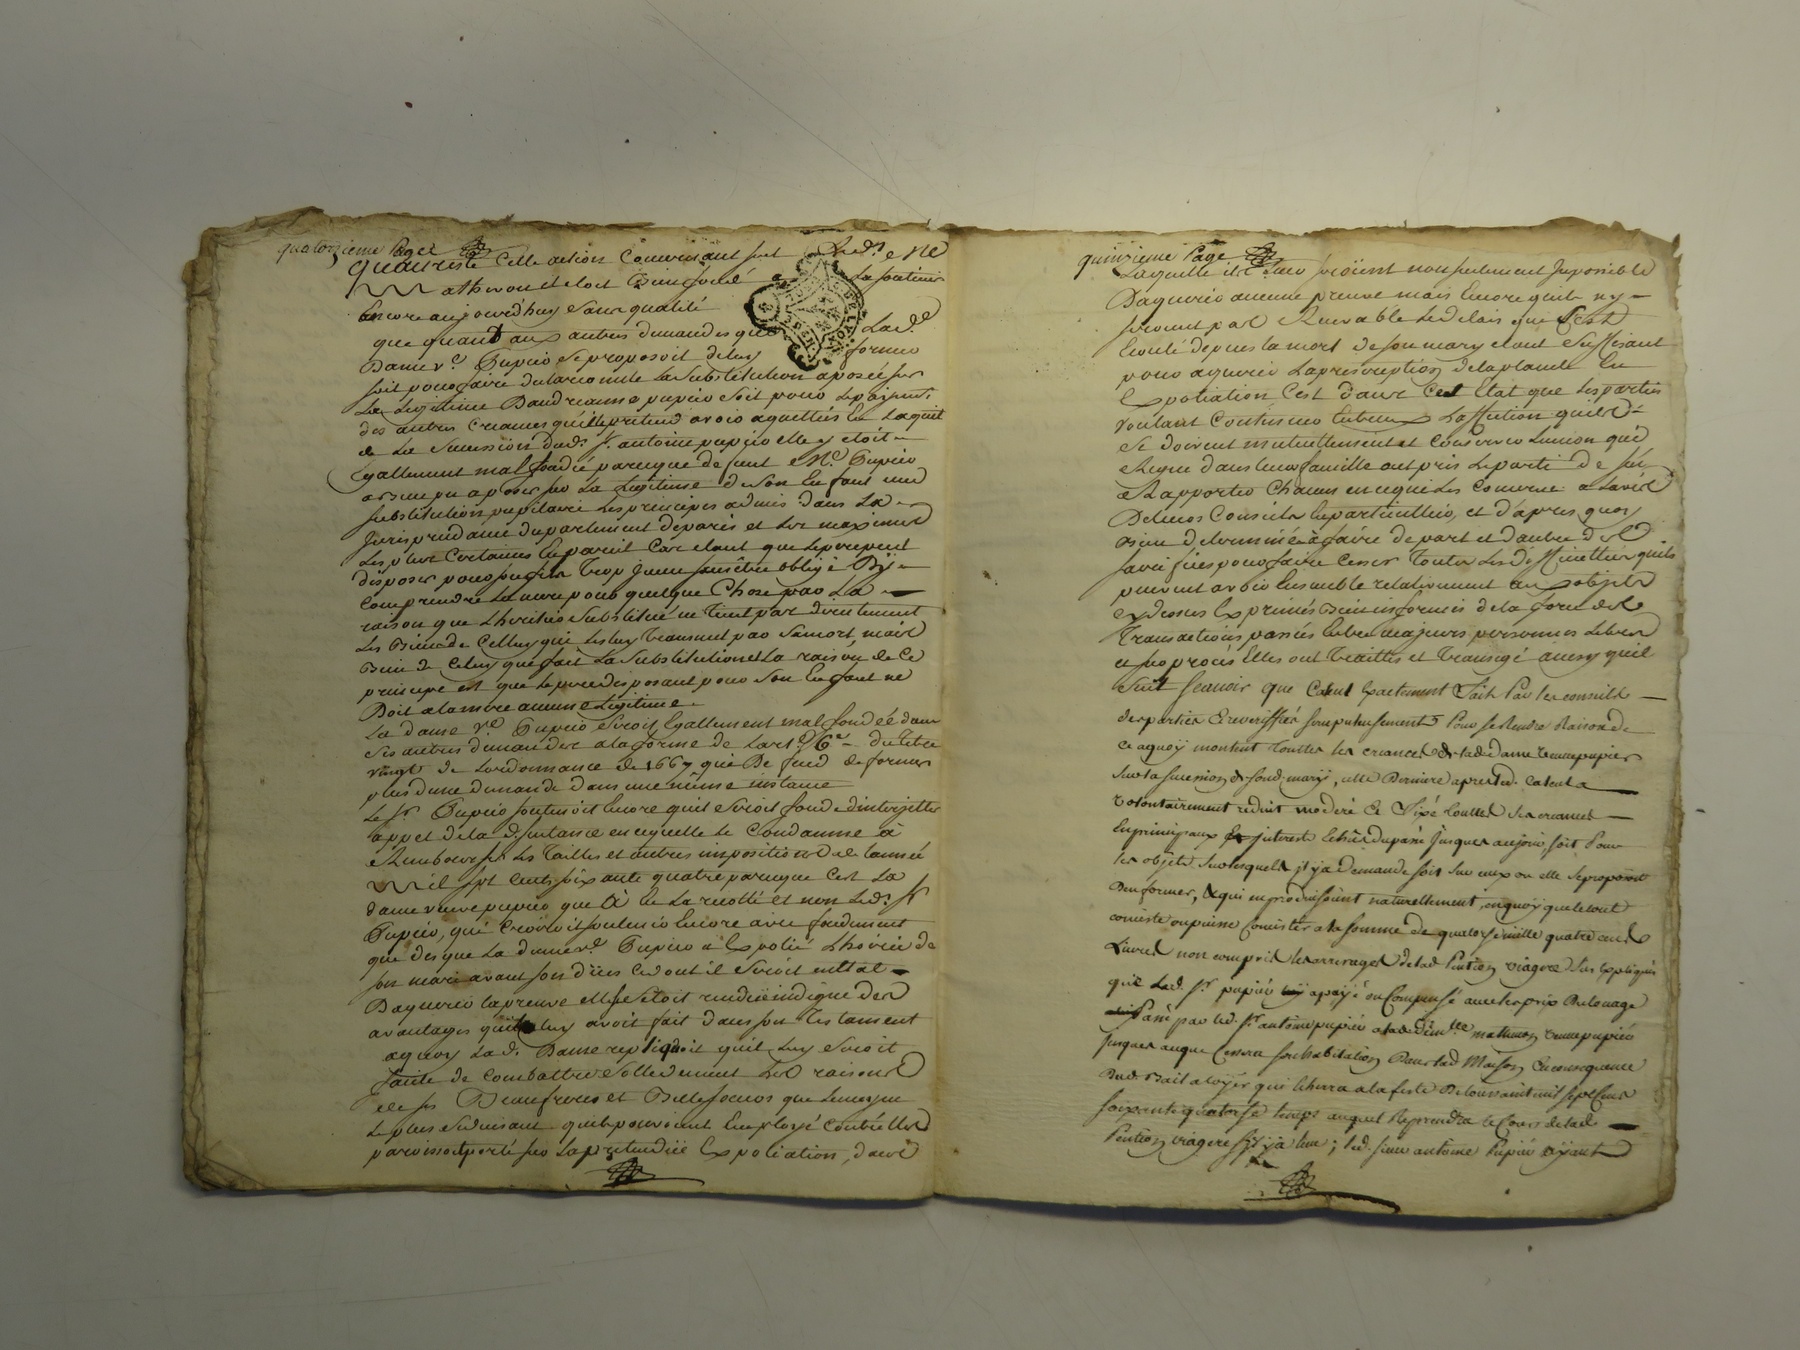 quatorzieme Page
quaureste cette action Concernant led. me
Mathevon il etoit Bien fondé a La soutenir
Encore aujourd'huy Sans qualité
que quant aux autres demandes que Lade.
Dame ve. Pupier se proposoit de luy former
soit pour faire declarer nulle La Substitution aposée sur
La Legitime Dandreanne pupier Soit pour Le payement
des autres creances quelle pretend avoir aquittées En Laquit
de La Succession dud. sr. antoine pupier elle y etoit
Egallement mal fondée parceque defunt me. Pupier
a Bien pu aposer sur La Legitime de Son Enfant une
substitution pupilaire Les principes admis dans La
Jurisprudance du parlement de paris et Les maximes
Les plus Certaines En pareil Cas etant que Le pere peut
disposer pour son fils Trop Jeune sans être obligé D'y
Comprendre La mere pour quelque Chose par La
raison que Lheritier Substitué ne Tient pas directement
Les Biens de Celluy qui Les luy Transmet par Sa mort, mais
Bien de Celuy qui fait La Substitution et La raison de Ce
principe est que Le pere disposant pour Son Enfant ne
Doit a la mere aucune Legitime.
La dame ve. Pupier Seroit Egallement mal fondéé dans
Ses autres demandes a la forme de Lart. 6e. du titre
vingt de Lordonnance de 1667 qui Deffend de former
plus d'une demande dans une même instance
Le sr. Pupier soutenoit Encore quil Seroit fondé d'interjetter
appel de la d. sentance en ce quelle Le Condamne à
Rembourser Les Tailles et autres impositions de Lannée
Mil sept Cents soixante quatre parceque C'est La
dame veuve pupier qui à Eu La recolte et non Led. sr.
Pupier, qui Croiroit soutenir Encore avec fondement
que des que La dame ve. Pupier a Expolié Lhoirie de
son mari avant son déces ce dont il Seroit en Etat
D'aquerir la preuve elle Setoit rendüe indigne des
avantages quil luy avoit fait dans son Testament
a quoy Lad. Dame repliquoit quil Luy Seroit
facile de Combattre Solidement Les raisons
de ses Beaufreres et Bellesoeurs que Le moyen
Le plus Seduisant quils pouvoient Employé Contre Elle
paroissoit porté sur La pretendüe Expoliation, dans
quinzieme Page
Laquelle ils seroient non seulement Impossible
D'aquerir aucune preuve mais Encore quils n'y
seroient pas Recevable Le delais qui s'est
Ecoulé depuis la mort de son mary etant Suffisant
pour aquerir La prescription de la plainte En
Expoliation C'est dans Cet Etat que Les parties
voulant Continuer Entreux L'affection quils
se doivent mutuellement et Conserver Lunion qui
Regne dans leur famille ont pris Le parti de se
Rapporter Chacun en ce qui Les Concerne a Lavis
De leurs Conseils En particullier, et d'apres quoy
Bien determinée à faire de part et d'autre des
sacrifices pour faire Cesser Toutes Les difficulttes quils
peuvent avoir Ensemble relativement aux objets
cy dessus Exprimés Bien informés de la force des
Transactions passées Entre majeurs personnes Libres
et sur procès Elles ont Traittés et Transigé ainsy quil
Suit sçavoir que Calcul Exactement Fait Par les conseills
des parties Et veriffiés scrupuleusement Pour se Rendre Raison de
ce aquoÿ montent Touttes les creances de lade dame veuve pupier
Sur la sucession de sond. mary, cette Derniere apres led. Calcul a
volontairement reduit moderé et Fixé touttes Ses creances
En principaux Et interests Echûs du passé Jusques aujourd. soit Pour
les objets Surlesquels il ÿ a Demande soit Sur ceux ou elle Se proposoit
Den former, & qui en produisoient naturellement, en quoÿ que le tout
consiste ou puisse Consister a la somme de quatorse mille quatre cents
Livres non compris les arrerages de lad. Pention viagere Sus Expliquée
que Led. sr. pupier a paÿé ou Compensé avec le prix Du louage
Passé par led. sr. antoine pupier a lade demlle. mathevon veuve pupier
Jusques au que Cessera son habitation Dans lad Maison En consequance
Dud. Bail a loyer qui Echerra a la feste De toussaint mil sept Cent
soixante quatorse temps auquel Reprendra le Cours de lad.
Pention viagere s'il ÿ a lieu ; led. sieur antoine Pupier aÿant